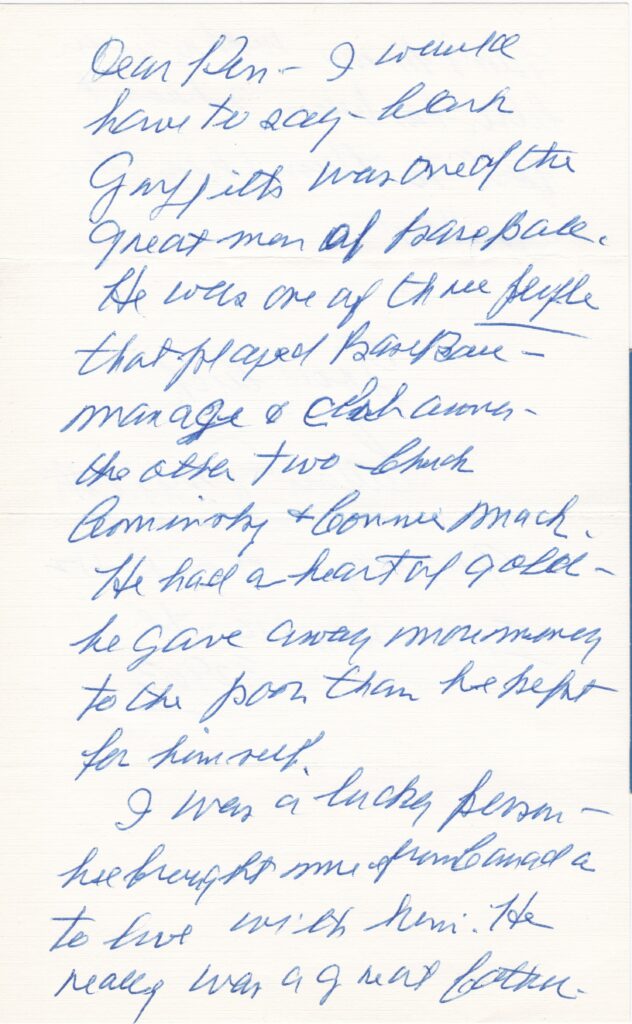 Dear Ken - I would
have to say - Clark
Griffith was one of the
great men of baseball.
He was one of three people
that played BaseBall -
manage & club owner -
the other two - Chuck
Cominsky & Connie Mack.
He had a heart of gold -
he gave away more money
to the poor than he kept
for himself.
I was a lucky person -
he brought me from Canada
to live with him. He
really was a great father.